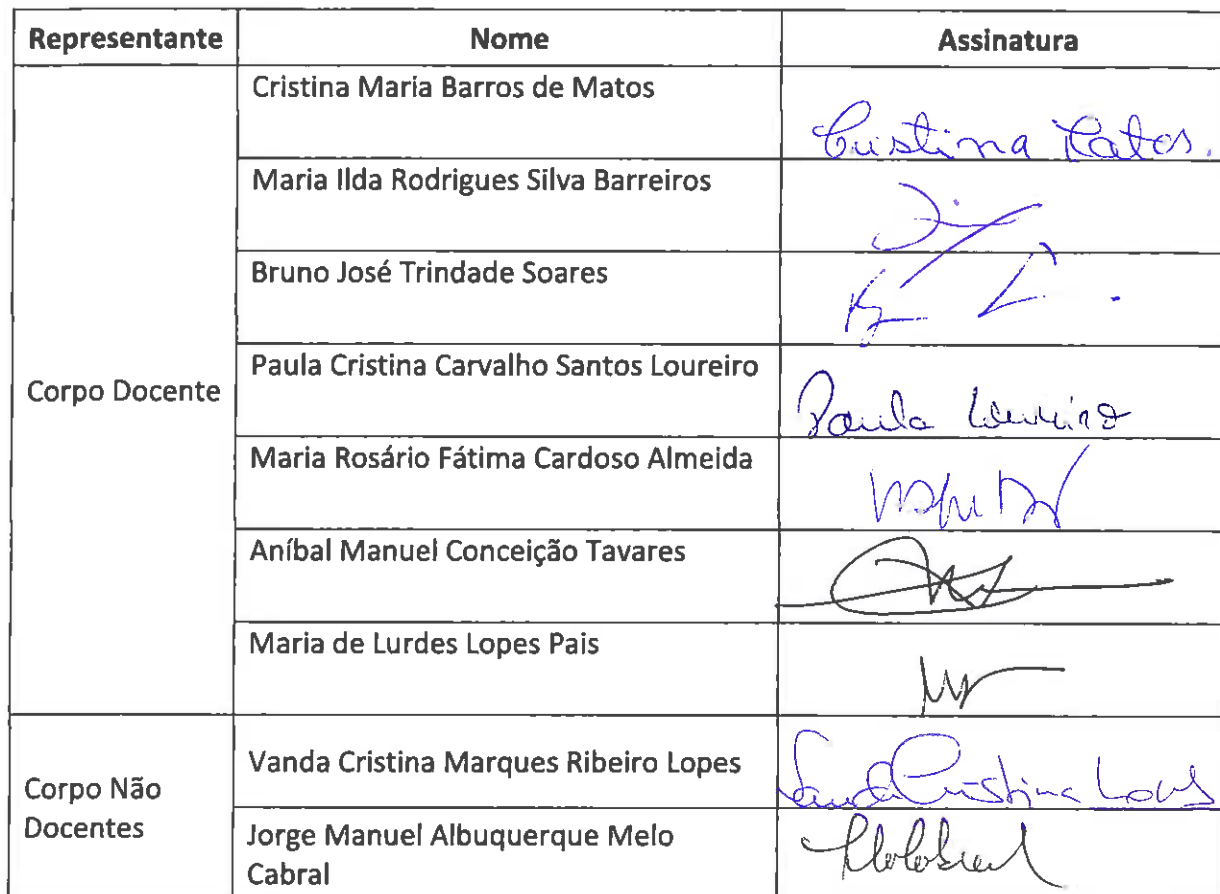 Representante Nome Assinatura
Corpo Docente
Cristina Maria Barros de Matos
Cristina Matos.
Maria Ilda Rodrigues Silva Barreiros
Bruno José Trindade Soares
Paula Cristina Carvalho Santos Loureiro
Paula Loureiro
Maria Rosário Fátima Cardoso Almeida
Aníbal Manuel Conceição Tavares
Maria de Lurdes Lopes Pais
Corpo Não
Docentes
Vanda Cristina Marques Ribeiro Lopes
Vanda Cristina Lopes
Jorge Manuel Albuquerque Melo
Cabral